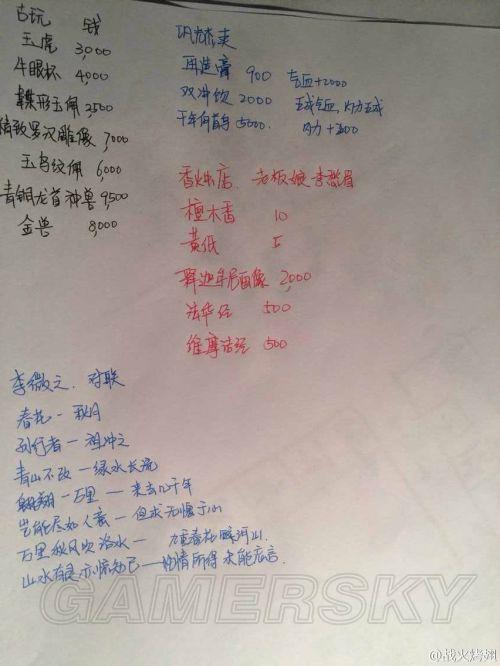 古玩 钱
玉虎 3,000
牛眼杯 4,000
蝶形玉佩 2,500
精致罗汉雕像 7,000
玉鸟纹佩 6,000
青铜龙首神兽 9,500
金兽 8,000
再造膏 900 气血+2000
双冲饮 2000 五成气血,内力五成
千年何首乌 5000. 内力+
香烛店. 老板娘 李愁眉
檀木香 10
黄纸 5
释迦牟尼画像 2,000
法华经 500
维摩诘经 500
李微之. 对联
春花一秋月
孙行者一祖冲之
青山不改一绿水长流
翱翔一万里 — 来去几千年
岂能尽如人意 — 但求无愧于心
万里秋风吹洛水 — 春花映河山.
山水有灵亦惊知己 — 性情所得未能忘言.
GAMERSKY
@战火烤翅